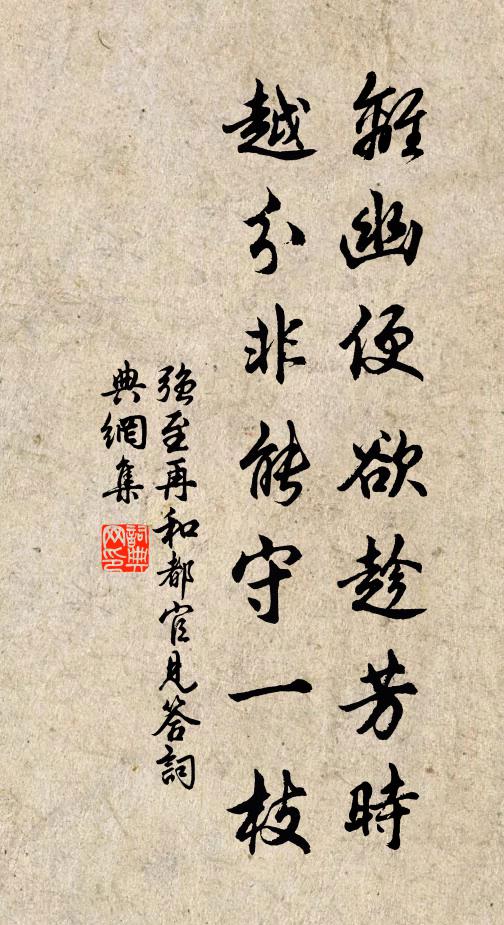 離幽便欲趁芳時
越分非能守一枝
強至再和都官見答詞
典網集
詞典网印